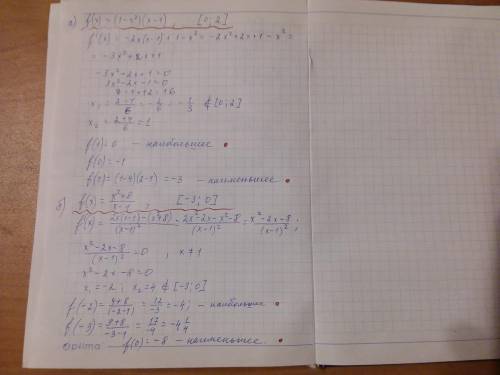 а) f(x) = (1-x²)(x-1) [0; 2]
f'(x) = -2x(x-1)+1-x² = -2x²+2x+1-x² =
= -3x²+2x+1
-3x²+2x+1=0
3x²-2x-1=0
x₁ = (2-4)/6 = -2/6 = -1/3 ∉ [0; 2]
x₂ = (2+4)/6 = 1
f(1)=0 - наибольшее
f(0)=-1
f(2)=(1-4)(2-1)=-3 - наименьшее
б) f(x) = (x²+8)/(x-1), [-3; 0]
f'(x) = (2x(x-1)-(x²+8))/(x-1)² = (2x²-2x-x²-8)/(x-1)² = (x²-2x-8)/(x-1)²;
(x²-2x-8)/(x-1)² = 0, x≠1
x²-2x-8=0
x₁=-2; x₂=4 ∉ [-3; 0]
f(-2) = (4+8)/(-2-1) = 12/-3 = -4; - наибольшее
f(-3) = (9+8)/(-3-1) = 17/-4 = -4 1/4
f(0)=-8 - наименьшее.